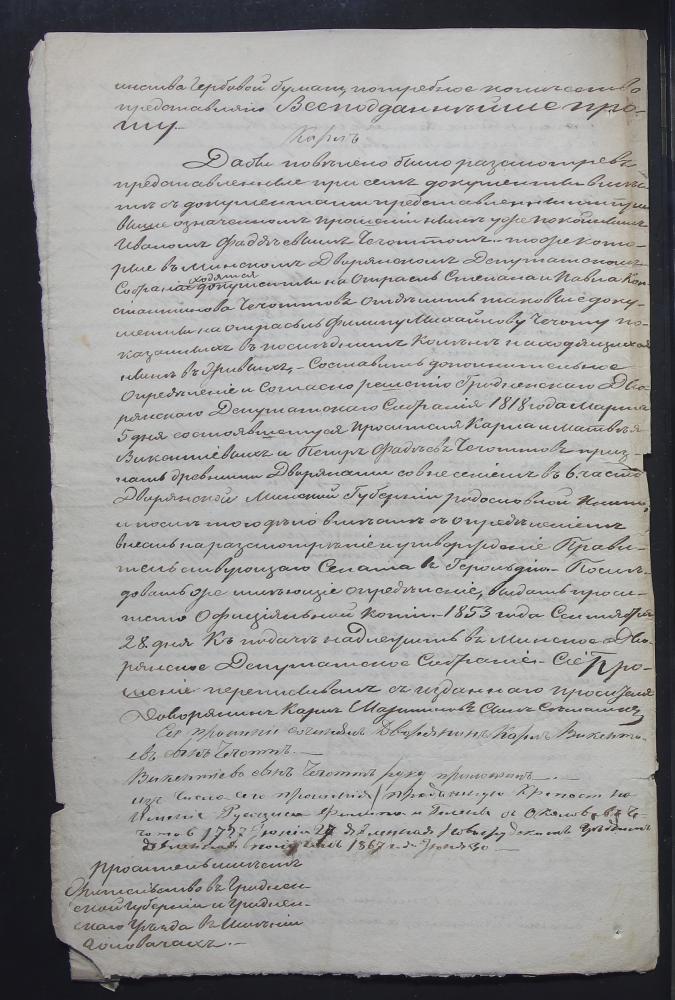 инства Гербовой бумаги потребное количество
представляю Всеподданнѣйше про-
шу.
Карлъ
Дабы повѣлено было разсмотрев
представленные при семъ документы вмѣс-
тѣ съ документами представленными при
выше означенномъ прошеніи нынѣ уже покойнымъ
Иваномъ Фаддѣевымъ Чечоттомъ. тоже кото-
рые въ Минскомъ Дворянскомъ Депутатскомъ
ходятся
Собраніи документы на Отрасль Степана и Павла Кон-
стантинова Чечоттовъ Отдѣлить таковые доку-
менты на отрасль Филипу Михайлову Чечоту по-
казаннымъ въ послѣднихъ
нынѣ въ Архивахъ, - Составить дополнительное
Опредѣленіе и Согласно решенію Гродненскаго Дво-
рянскаго Депутатскаго Собранія 1818 года Марта
5 дня состоявшемуся просителя Карла и Матвѣя
Викентіевыхъ и Петра Фадѣева Чечоттовъ приз-
нать древними Дворянами со внесеніемъ въ 6. часть
Дворянской Минской Губерніи родословной Книги,
и послѣ того дѣло вмѣстѣ съ опредѣленіемъ
внесть на разсмотрѣніе и утвержденіе Прави-
тельствующаго Сената въ Герольдію. - Послѣ-
довать же имѣющіе опредѣленіе, выдать проси-
телю Официяльной Копіи. - 1853 года Сентября
28. дня Къ подачѣ надлежитъ въ Минское Дво-
рянское Депутатское Собраніе. - Сіе Про-
шеніе переписывалъ съ изданнаго просителя
Дворянинъ Карлъ Мартиновъ Сынъ
Сіе прошеніе сочинялъ Дворянинъ Карлъ Викенть-
евъ сынъ Чечоттъ. -
Викентіевъ сынъ Чечоттъ руку приложилъ. -
изъ числа сего прошенія / Крепость на
Именіе
1727 Іюнія 27 явленная Новогрудскимъ Уѣзднымъ
1867 года Іюня 30 -
Проситель имѣетъ
Жительство въ Гроднен-
ской Губерніи и Гроднен-
скаго Уѣзда въ Имѣніи
Головачахъ. -